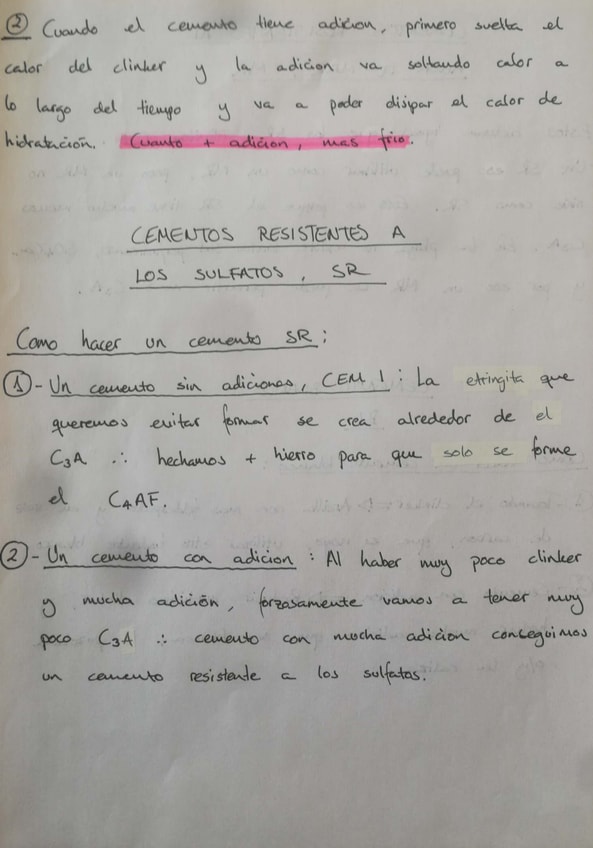 ② Cuando el cemento tiene adicion, primero suelta el
calor del clinker y la adicion va soltando calor a
lo largo del tiempo y va a poder disipar el calor de
hidratación. Cuanto + adicion, mas frio.
CEMENTOS RESISTENTES A
LOS SULFATOS, SR
Como hacer un cemento SR:
① - Un cemento sin adiciones, CEM I: La etringita que
queremos evitar formar se crea alrededor de el
C₃A ∴ hechamos + hierro para que solo se forme
el C₄AF.
② - Un cemento con adicion: Al haber muy poco clinker
y mucha adición, forzosamente vamos a tener muy
poco C₃A ∴ cemento con mucha adicion conseguimos
un cemento resistente a los sulfatos.